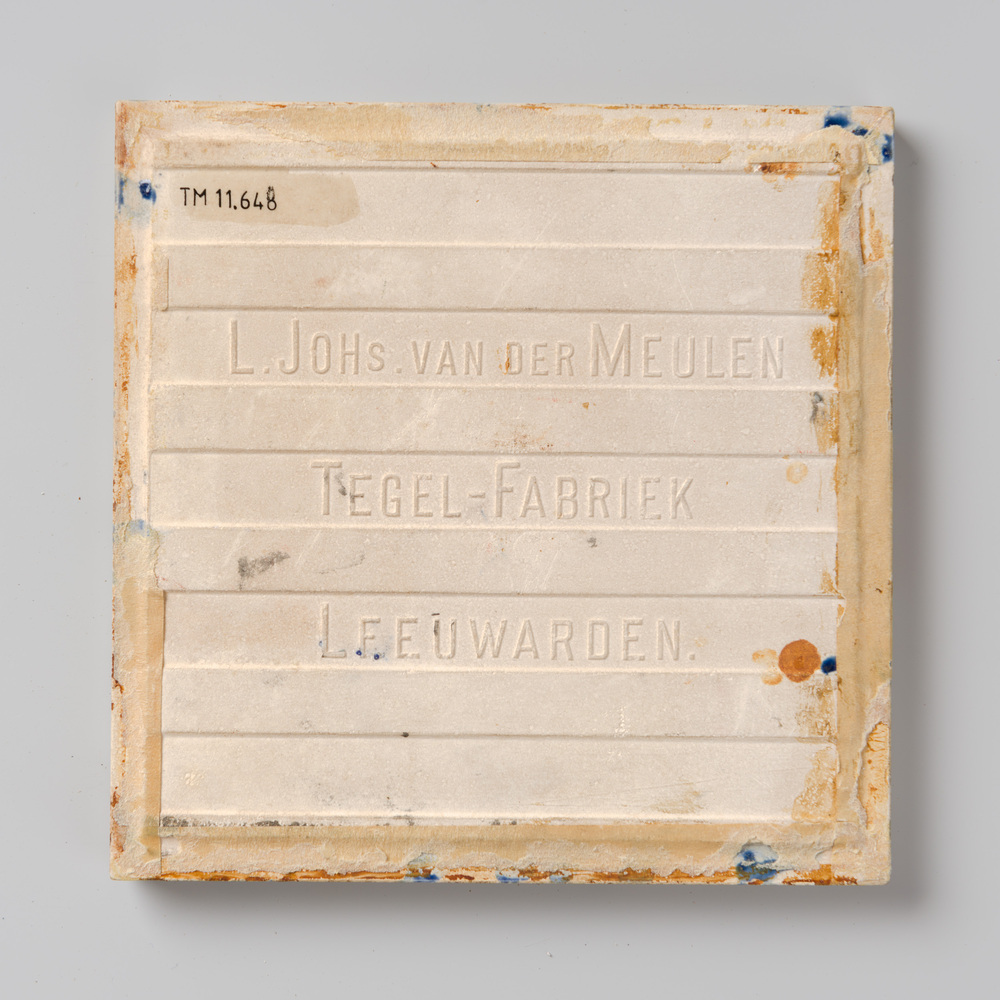 TM 11.648
L. JOHs. VAN DER MEULEN
TEGEL-FABRIEK
LEEUWARDEN.